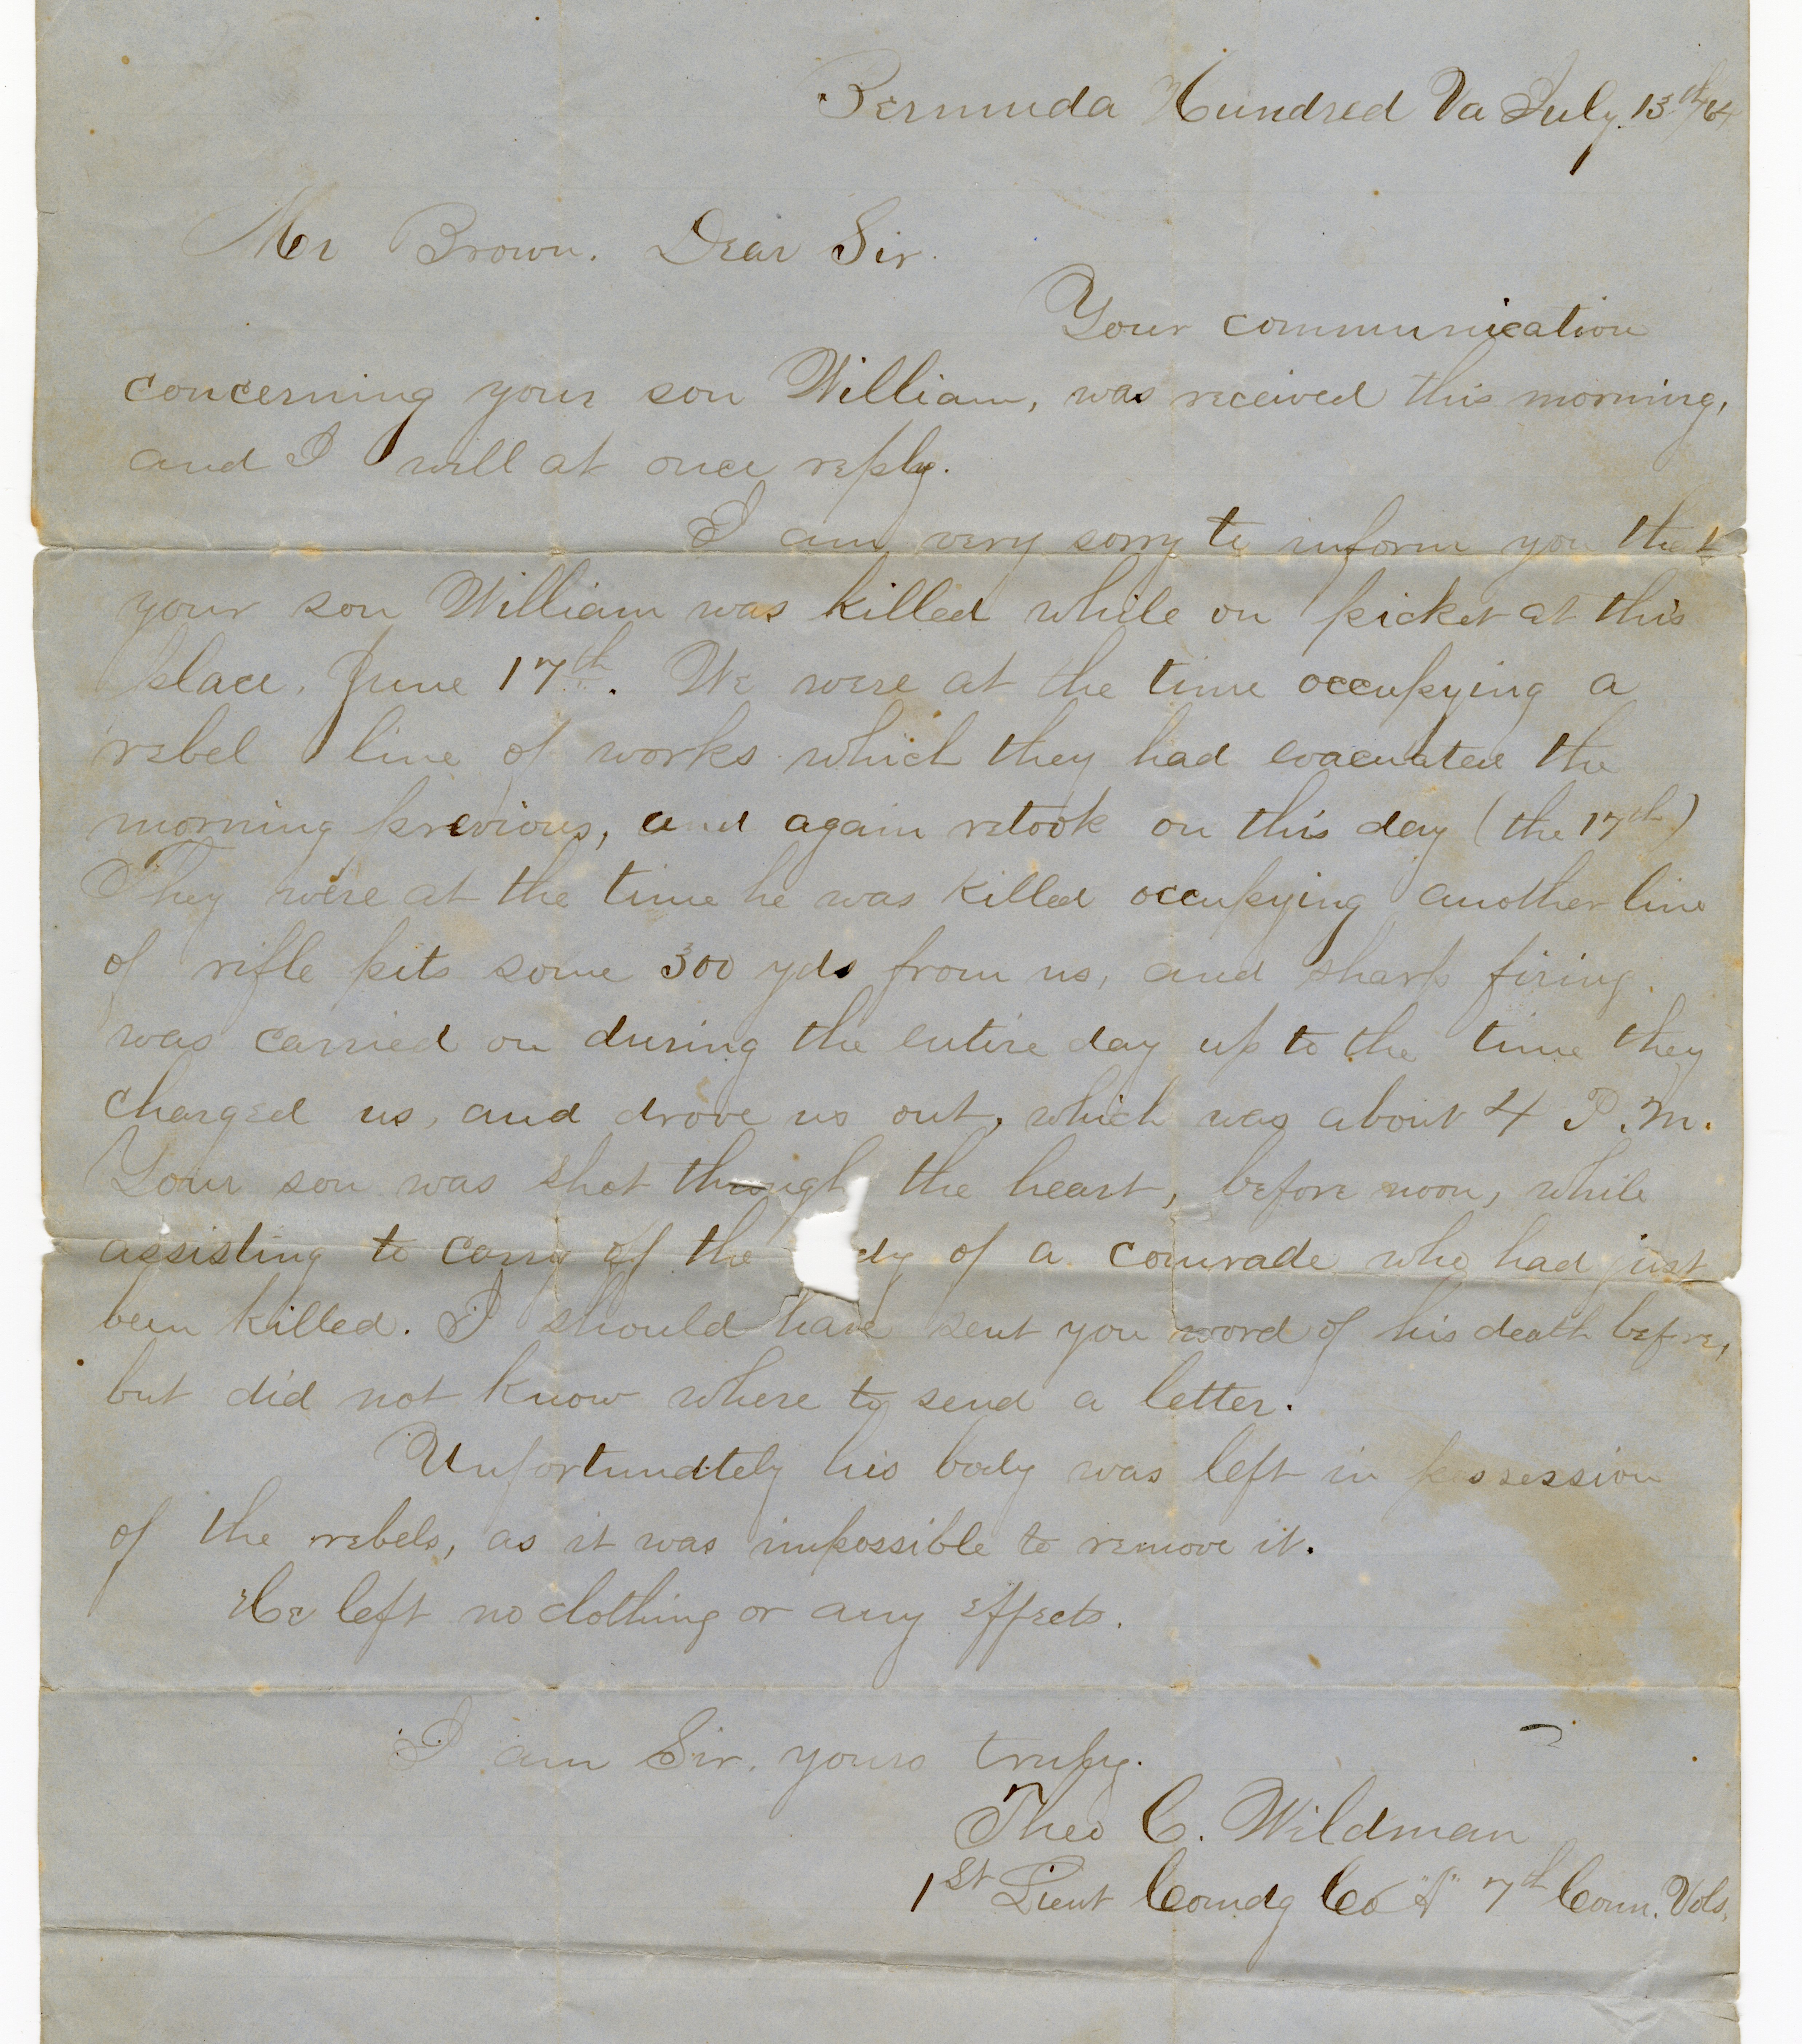 Bermuda Hundred Va July 13th/64
Mr Brown. Dear Sir.
Your communication
concerning your son William, was received this morning,
and I will at once reply.
I am very sorry to inform you that
your son William was killed while on picket at this
place, June 17th. We were at the time occupying a
rebel line of works which they had evacuated the
morning previous, and again retook on this day (the 17th)
They were at the time he was killed occupying another line
of rifle pits some 300 yds from us, and sharp firing
was carried on during the entire day up to the time they
charged us, and drove us out, which was about 4 P.M.
Your son was shot through the heart, before noon, while
assisting to carry off the dy of a comrade who had just
been killed. I should have sent you word of his death before,
but did not know where to send a letter.
Unfortunately his body was left in possession
of the rebels, as it was impossible to remove it.
He left no clothing or any effects.
I am Sir, yours truly.
Theo C. Wildman
1st Lieut Comdg Co 7th Conn. Vols.